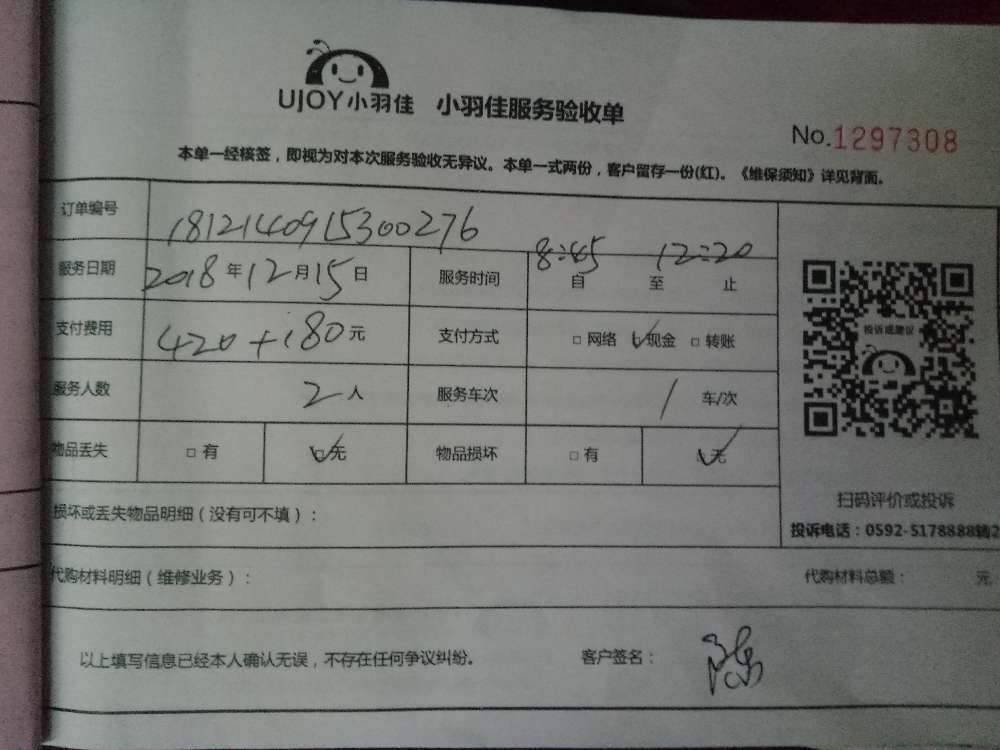 UJOY小羽佳 小羽佳服务验收单
No.1297308
本单一经核签，即视为对本次服务验收无异议。本单一式两份，客户留存一份(红)。《维保须知》详见背面。
订单编号 1812140915300276
服务日期 2018年12月15日 服务时间 8:45自 12:20至 止
支付费用 420+180元 支付方式 □网络 ✓现金 □转账
服务人数 2人 服务车次 1车/次
物品丢失 □有 ☑无 物品损坏 □有 ☑无
投诉或建议
扫码评价或投诉
投诉电话：0592-5178888转2
损坏或丢失物品明细（没有可不填）：
代购材料明细（维修业务）： 代购材料总额： 元
以上填写信息已经本人确认无误，不存在任何争议纠纷。 客户签名：